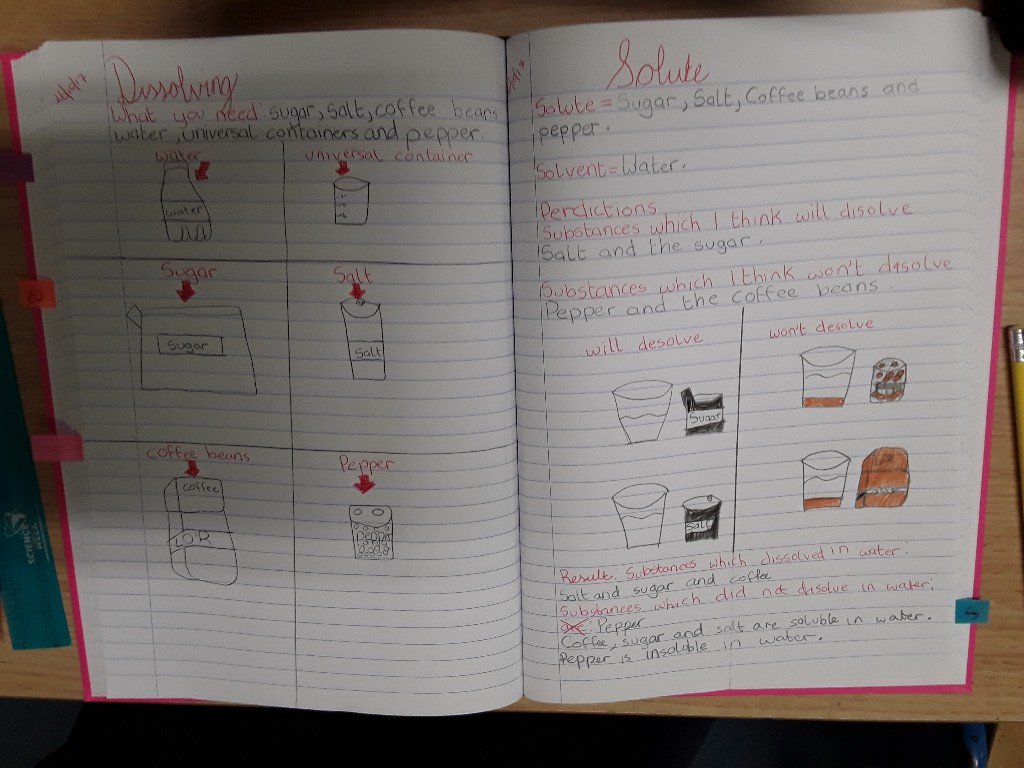 Dissolving
What you need: sugar, salt, coffee beans
water, universal containers and pepper.
water
universal container
water
Sugar
Salt
Sugar
Salt
coffee beans
Pepper
coffee
LO'R
PEPPER
Solute
Solute = Sugar, Salt, Coffee beans and
pepper.
Solvent = Water.
Perdictions
Substances which I think will disolve
Salt and the sugar.
Substances which I think won't disolve
Pepper and the coffee beans.
will desolve
won't desolve
Sugar
Salt
Result: Substances which dissolved in water:
Salt and sugar and coffee
Substances which did not disolve in water:
Pepper
Coffee, sugar and salt are soluble in water.
Pepper is insoluble in water.
SCIENCE